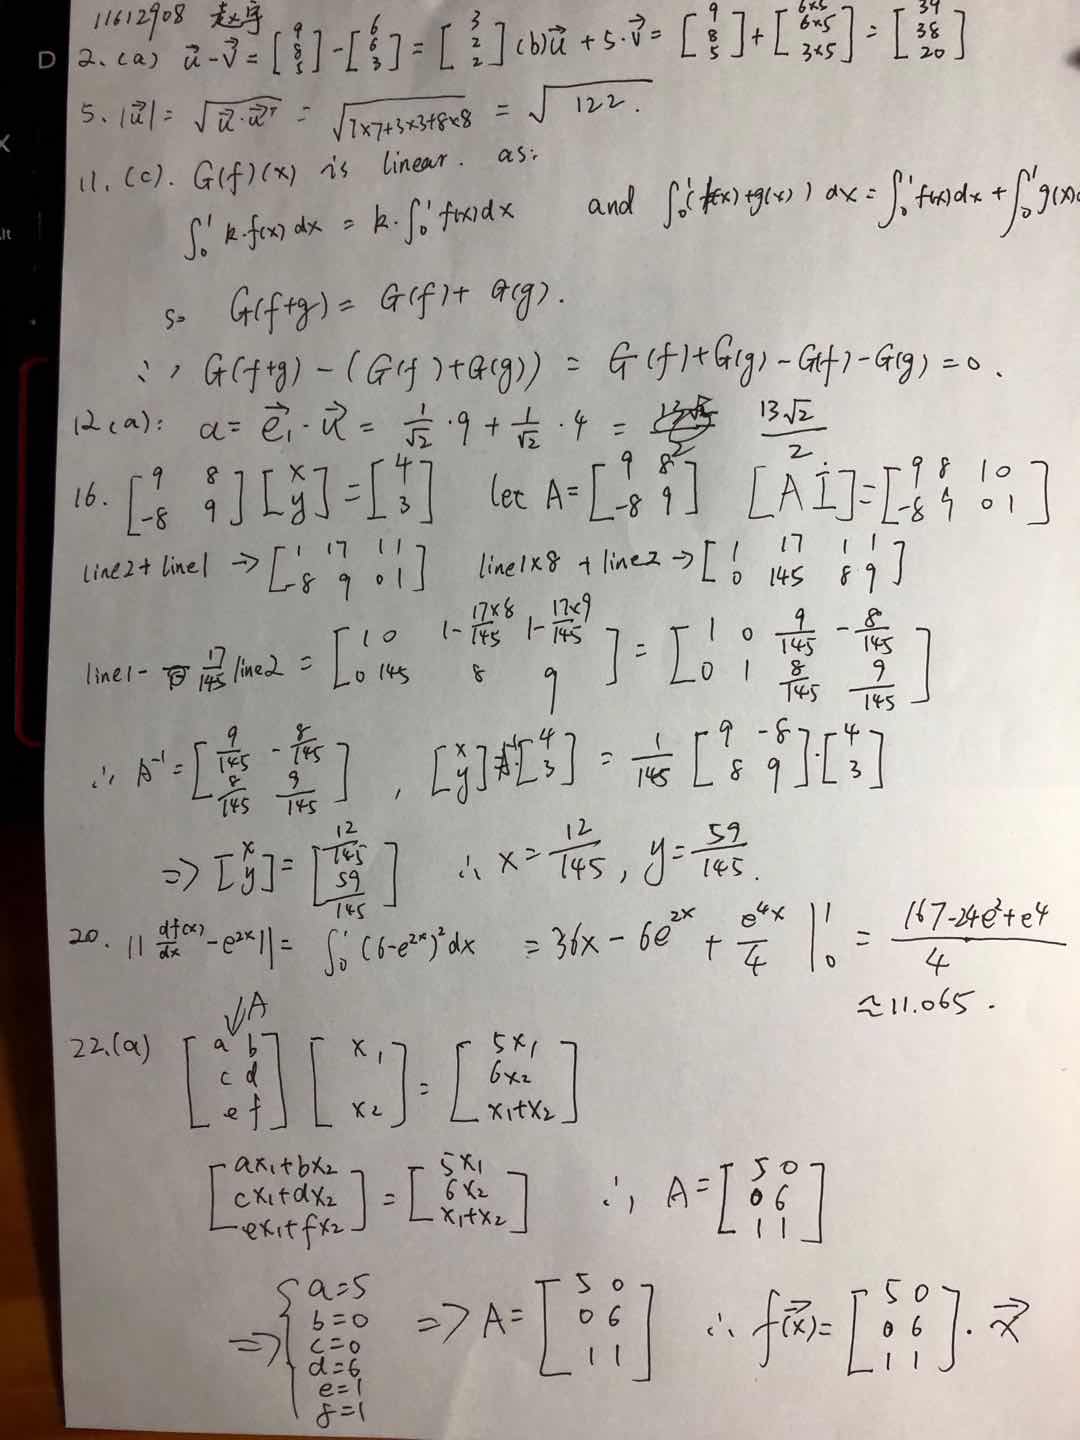 11612908 赵宇
D 2.(a) u⃗-v⃗=[9 8 5]-[6 6 3]=[3 2 2] (b)u⃗+5·v⃗=[9 8 5]+[6x5 6x5 3x5]=[39 38 20]
5. |u⃗|=√(u⃗·u⃗ᵀ) = √(7x7+3x3+8x8) = √122.
11.(c). G(f)(x) is linear. as:
∫₀¹ k·f(x)dx = k·∫₀¹ f(x)dx and ∫₀¹(f(x)+g(x))dx=∫₀¹f(x)dx+∫₀¹g(x)
so G(f+g)=G(f)+G(g).
∴, G(f+g)-(G(f)+G(g)) = G(f)+G(g)-G(f)-G(g)=0.
12(a): a=e⃗₁·u⃗=1/√2·9+1/√2·4= 13√2/2
16. [9 8; -8 9][x; y]=[4; 3] let A=[9 8; -8 9] [A I]=[9 8 1 0; -8 9 0 1]
line2+line1→[1 17 1 1; -8 9 0 1] line1x8+line2→[1 17 1 1; 0 145 8 9]
line1-17/145 line2=[1 0 1-17x8/145 1-17x9/145; 0 145 8 9]=[1 0 9/145 -8/145; 0 1 8/145 9/145]
∴, A⁻¹=[9/145 -8/145; 8/145 9/145], [x; y]=A⁻¹·[4; 3]=1/145[9 -8; 8 9]·[4; 3]
=>[x; y]=[12/145; 59/145] ∴, x=12/145, y=59/145.
20. ||df(x)/dx-e²ˣ||=∫₀¹(6-e²ˣ)²dx =36x-6e²ˣ+e⁴ˣ/4|₀¹=167-24e²+e⁴/4
≈11.065.
↓A
22.(a) [a b; c d; e f][x₁; x₂]=[5x₁; 6x₂; x₁+x₂]
[ax₁+bx₂; cx₁+dx₂; ex₁+fx₂]=[5x₁; 6x₂; x₁+x₂] ∴, A=[5 0; 0 6; 1 1]
=>{a=5 b=0 c=0 d=6 e=1 f=1 =>A=[5 0; 0 6; 1 1] ∴f(x⃗)=[5 0; 0 6; 1 1]·x⃗